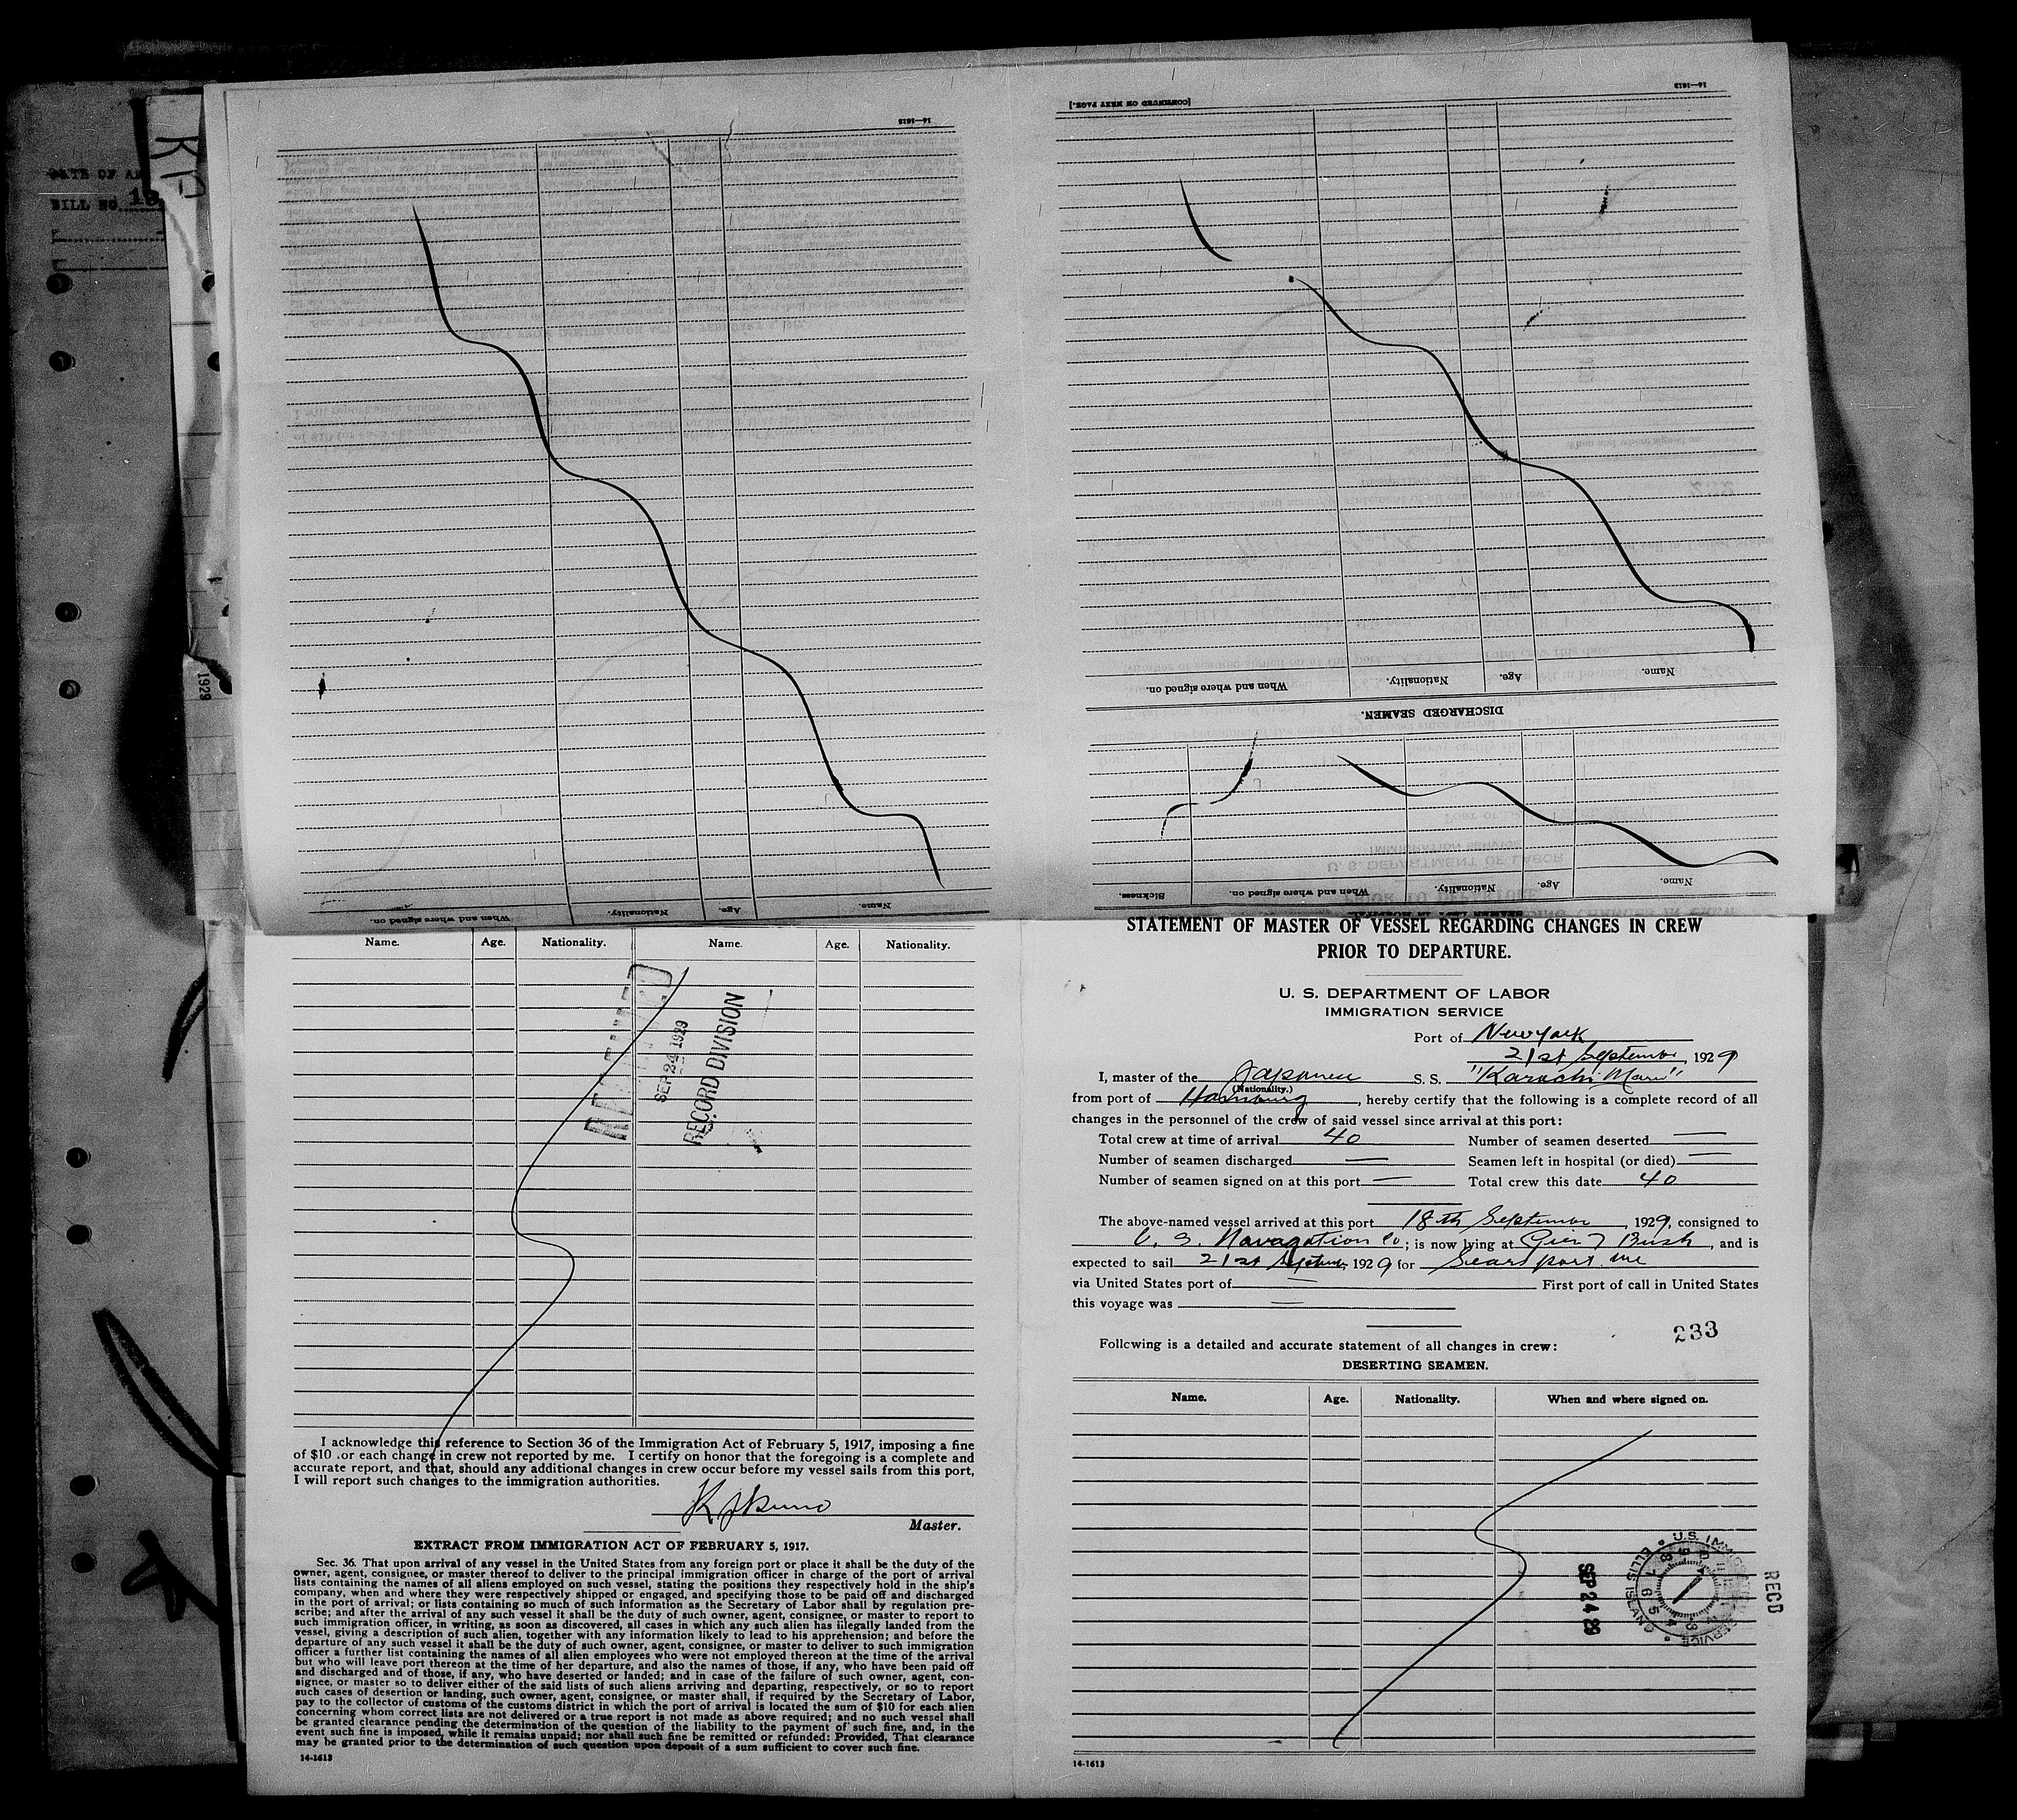 DATE OF AR
BILL NO. 18
KA
1929
14—1613
When and where signed on.
Nationality.
Age.
Name.
[CONTINUED ON NEXT PAGE.]
14—1613
When and where signed on.
Nationality.
Age.
Name.
DISCHARGED SEAMEN.
Sickness.
When and where signed on.
Nationality.
Age.
Name.
Name. Age. Nationality. Name. Age. Nationality.
SEP 24 1929
RECORD DIVISION
I acknowledge this reference to Section 36 of the Immigration Act of February 5, 1917, imposing a fine
of $10 .or each change in crew not reported by me. I certify on honor that the foregoing is a complete and
accurate report, and that, should any additional changes in crew occur before my vessel sails from this port,
I will report such changes to the immigration authorities.
Master.
EXTRACT FROM IMMIGRATION ACT OF FEBRUARY 5, 1917.
Sec. 36. That upon arrival of any vessel in the United States from any foreign port or place it shall be the duty of the
owner, agent, consignee, or master thereof to deliver to the principal immigration officer in charge of the port of arrival
lists containing the names of all aliens employed on such vessel, stating the positions they respectively hold in the ship's
company, when and where they were respectively shipped or engaged, and specifying those to be paid off and discharged
in the port of arrival; or lists containing so much of such information as the Secretary of Labor shall by regulation pre-
scribe; and after the arrival of any such vessel it shall be the duty of such owner, agent, consignee, or master to report to
such immigration officer, in writing, as soon as discovered, all cases in which any such alien has illegally landed from the
vessel, giving a description of such alien, together with any information likely to lead to his apprehension; and before the
departure of any such vessel it shall be the duty of such owner, agent, consignee, or master to deliver to such immigration
officer a further list containing the names of all alien employees who were not employed thereon at the time of the arrival
but who will leave port thereon at the time of her departure, and also the names of those, if any, who have been paid off
and discharged and of those, if any, who have deserted or landed; and in case of the failure of such owner, agent, con-
signee, or master so to deliver either of the said lists of such aliens arriving and departing, respectively, or so to report
such cases of desertion or landing, such owner, agent, consignee, or master shall, if required by the Secretary of Labor,
pay to the collector of customs of the customs district in which the port of arrival is located the sum of $10 for each alien
concerning whom correct lists are not delivered or a true report is not made as above required; and no such vessel shall
be granted clearance pending the determination of the question of the liability to the payment of such fine, and, in the
event such fine is imposed, while it remains unpaid; nor shall such fine be remitted or refunded: Provided, That clearance
may be granted prior to the determination of such question upon deposit of a sum sufficient to cover such fine.
14-1613
STATEMENT OF MASTER OF VESSEL REGARDING CHANGES IN CREW
PRIOR TO DEPARTURE.
U. S. DEPARTMENT OF LABOR
IMMIGRATION SERVICE
Port of New York
21st September, 1929
I, master of the Japanese S. S. "Karachi Maru"
(Nationality.)
from port of Hamburg, hereby certify that the following is a complete record of all
changes in the personnel of the crew of said vessel since arrival at this port:
Total crew at time of arrival 40 Number of seamen deserted —
Number of seamen discharged — Seamen left in hospital (or died) —
Number of seamen signed on at this port — Total crew this date 40
The above-named vessel arrived at this port 18th September, 1929, consigned to
U. S. Navagation Co; is now lying at Pier 7 Bush, and is
expected to sail 21st September 1929 for Searsport. Me
via United States port of — First port of call in United States
this voyage was —
233
Following is a detailed and accurate statement of all changes in crew:
DESERTING SEAMEN.
Name. Age. Nationality. When and where signed on.
U.S. IMMIGRATION SERVICE
ELLIS ISLAND
SEP 24 29
RECD
14-1613